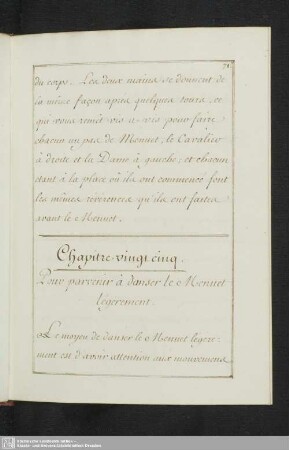 73
du corps. Les deux mains se donnent de
la même façon apres quelques tours, ce
qui vous remet vis-a-vis pour faire
chacun un pas de Menuet, le Cavalier
à droite et la Dame à gauche; et chacun
etant à la place où ils ont commencé font
les mêmes reverences qu'ils ont faites
avant le Menuet.
Chapitre vingt cinq.
Pour parvenir à danser le Menuet
legerement.
Le moyen de danser le Menuet legere-
ment est d'avoir attention aux mouvemens